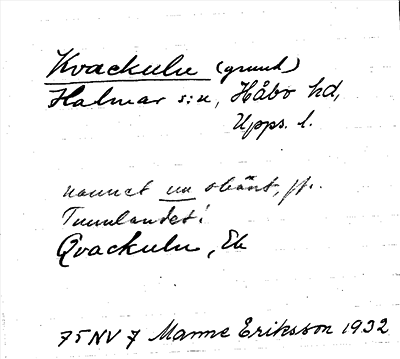 Kvackulu (grund)
Halmar s:n, Håbo hd,
Upps. l.
namnet nu okänt, jfr.
Qvackulu, Ek
75 NV 7 Manne Eriksson 1932